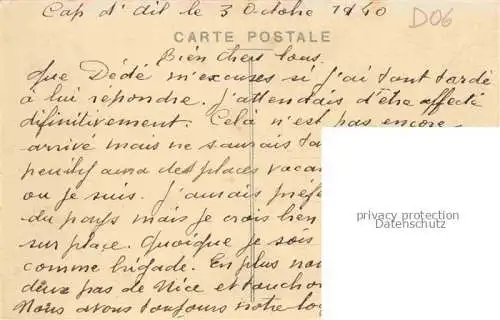 Cap d'Ail le 3 Octobre 1940
D06
CARTE POSTALE
Bien chers tous.
Que Dédé m'excuses si j'ai tant tardé
à lui répondre. J'attendais d'être affecté
difinitivement. Celà n'est pas encore
arrivé mais ne saurais
aura des places
ou je suis. J'aurais
du pays mais je crois bien
sur place. Quoique je sois
comme brigade. En plus
deux pas de Nice et
Nous avons toujours notre
privacy protection
Datenschutz